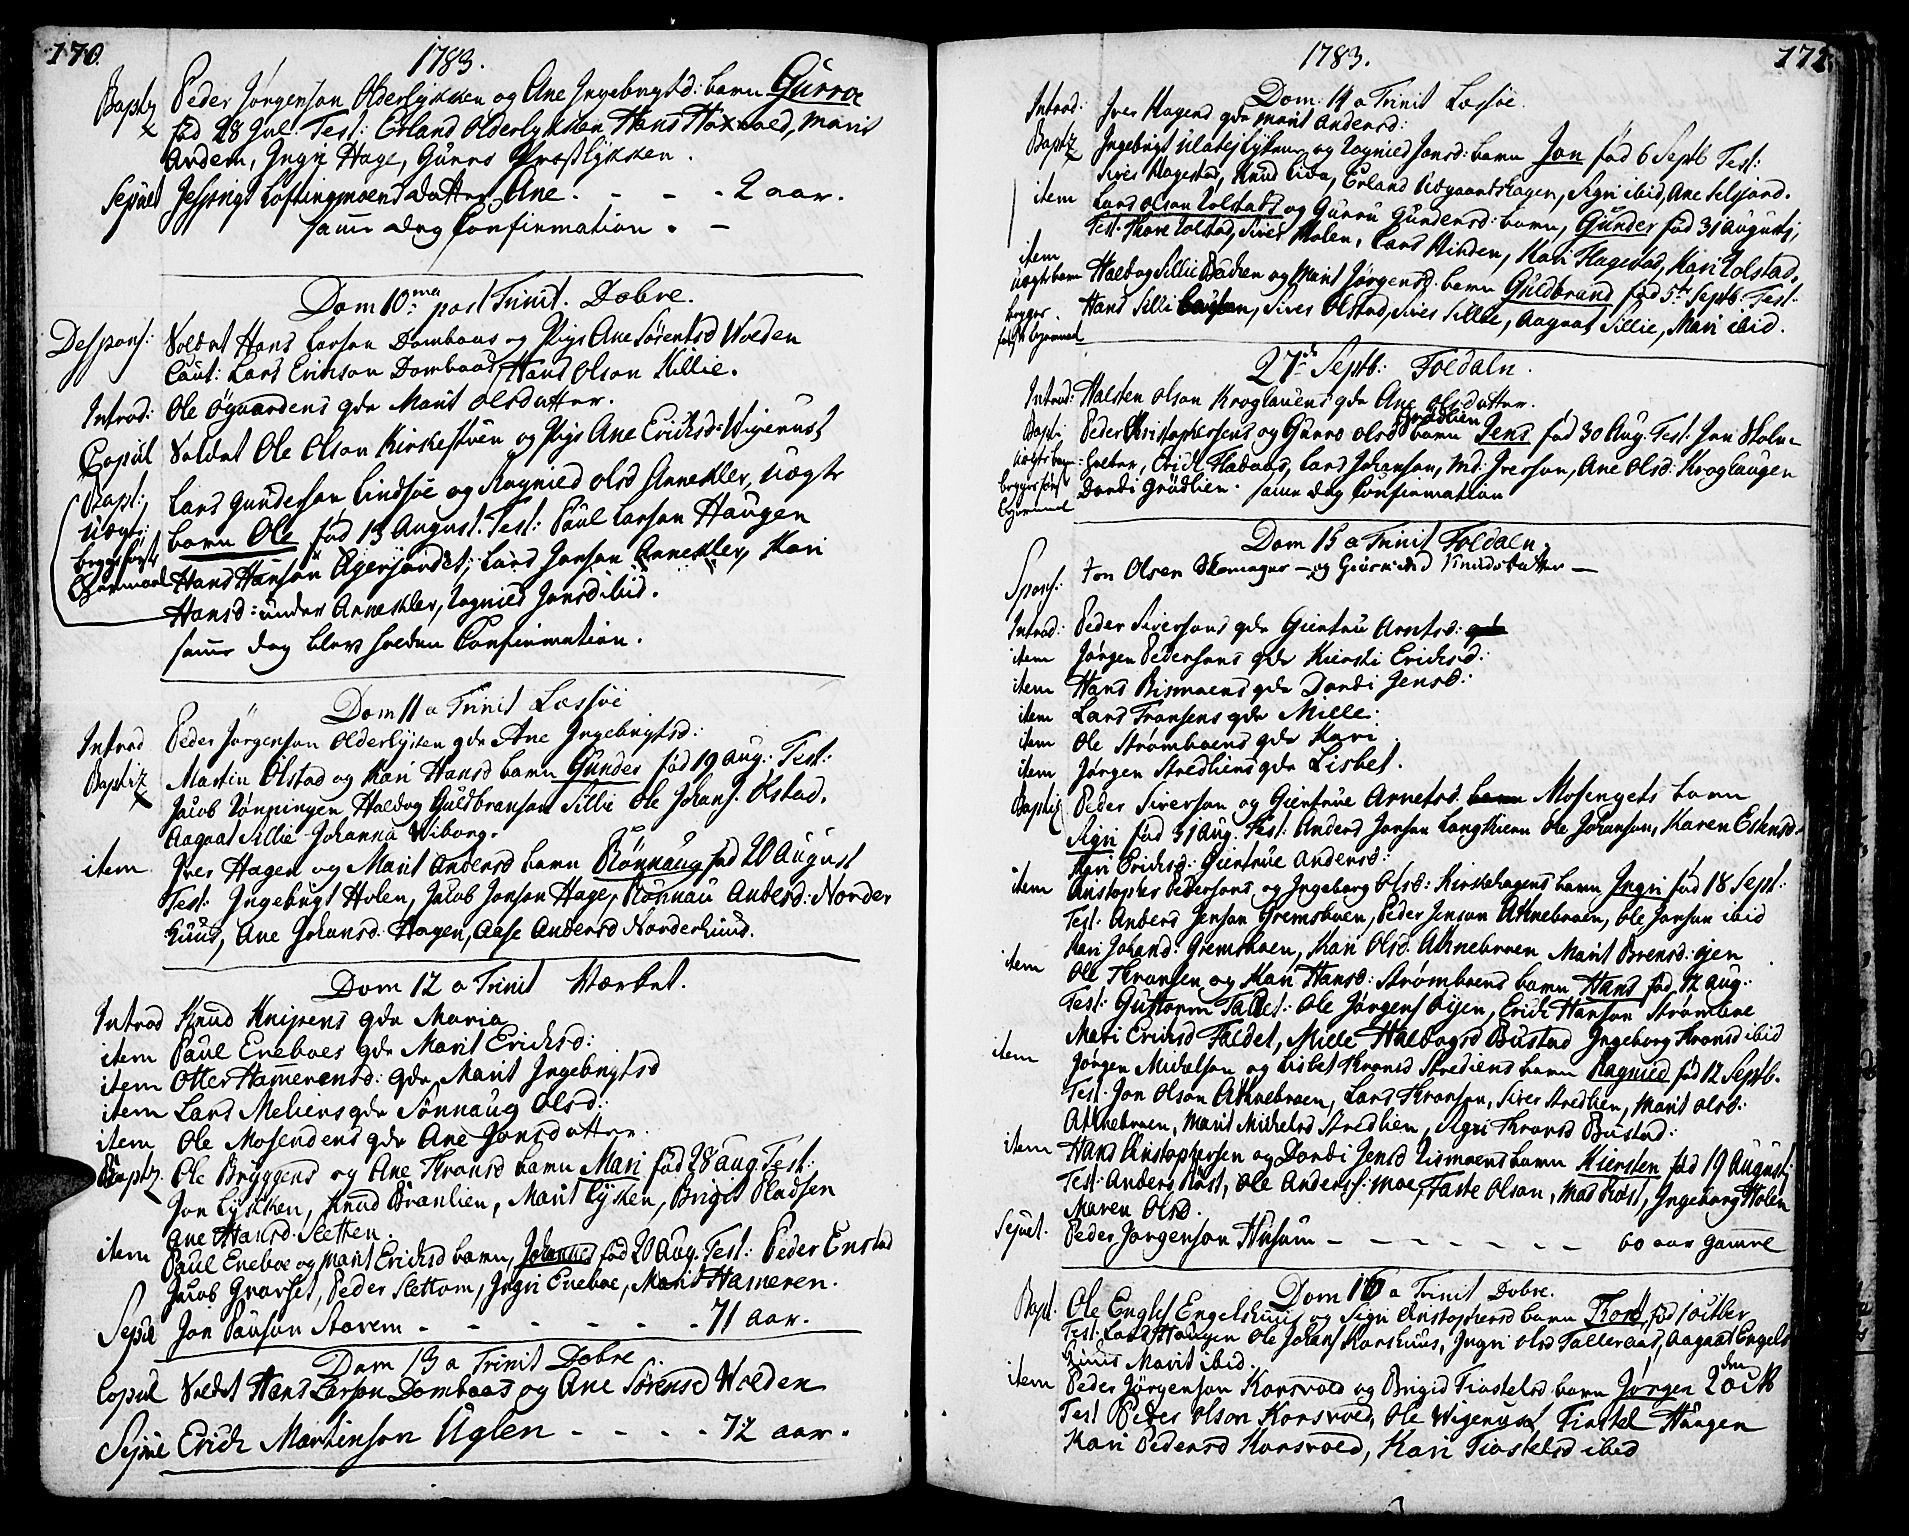 170.
1783.
Baptz Peder Jørgenson Olderlykken og Ane Ingebrigtsd: barn Gurroe
fød 28 Jul. Test: Erland Olderlykken, Hans Haxvold, Marit
Ardem, Ingri Hage, Gurroe
Sepult datter Ane. - - - 2 aar.
samme dag Confirmation. -
Dom 10ma post Trinit. Dobre.
Despons: Soldat Hans Larson Dombaas og Pige Ane Sørensd Wolden
Caut: Lars Erickson Dombaas, Hans Olson Killie.
Introd: Ole Øgaardens qde Marit Olsdatter.
Copul Soldat Ole Olson Kirkestuen og Pige Ane Ericksd: Wigerust
Bapt: Lars Gunderson Lindsøe og Ragnied Olsd Annekler, uægte
uægte barn Ole fød 13 August. Test: Paul Larson Haugen
begges første Hans Hanson Agerjordet, Lars Janson Annekler, Kari
Leyermaal Hansd: under Annekler, Ragnied Jonsd ibid.
samme dag blev holden Confirmation.
Dom 11 a Trinit Lessøe
Introd Peder Jørgenson Olderlykken qde Ane Ingebrigtsd:
Baptiz Martin Olstad og Kari Hansd barn Gunder fød 19 Aug: Test:
Jacob Rønningen Haldog Guldbranson Sillie Ole Johans. Olstad.
Aagaat Sillie Johanna Wiborg.
item Iver Hagen og Marit Andersd barn Rønnaug fød 20 August
Test: Ingebrigt Holen, Jacob Jonson Hage, Rønnau Andersd: Norder
huus, Ane Johansd: Hagen, Aase Andersd Norderhuus.
Dom 12 a Trinit Værket.
Introd Knud Knipens qde Maria
item Paul Eneboes qde Marit Ericksd:
item Otter Hamerensd: qde Marit Ingebrigtsd
item Lars Meliens qde Sønnaug Olsd:
item Ole Mosendens qde Ane Jonsdatter.
Baptz Ole Bryggens og Ane Thronsd barn Mari fød 28 aug. Test:
Jon Lykken, Knud Brænlien, Marit Lyken, Brigit Pladsen
Ane Hansd: Sletten.
item Paul Eneboe og Marit Ericksd barn, Johannes fød 20 Aug. Test: Peder Enstad
Jacob Gravset, Peder Slettom, Ingri Eneboe, Marit Hameren.
Sepul Jon Paulson Stavem - - - - - - 71 aar.
Dom 13 a Trinit Dobre
Copul Soldat Hans Larson Dombaas og Ane Sørensd Wolden
Sepul Erich Martinson Uglen - - - - 72 aar.
171.
1783.
Dom: 14 a Trinit Lessøe.
Introd: Iver Hagens qde Marit Andersd:
Baptz Ingebrigt og Ragnied Jonsd: barn Jon fød 6 Septb Test:
Siver Hagestad, Knud Lida, Erland Udgaardshagen, Sigri ibid, Ane Selsjord.
item Lars Olson Tolstad og Gurru Gundersd: barn, Gunder fød 31 Augusti,
Test: Thore Tolstad, Siver Holen, Lars Kinden, Kari Hagestad, Kari Tolstad.
item
uægte barn Haldog Sillie Backen og Marit Jørgensd. barn Guldbrand fød 5te Septb. Test:
begges Hans Sillie, Siver Olstad, Siver Sillie, Aagaat Sillie, Mari ibid.
første Leyermaal
27de Septb: Foldaln.
Introd: Halsten Olson Kroglauens qde Ane Olsdatter.
Grødlien
Bapti Peder Christophersens og Gurro Olsd barn Jens fød 30 Aug. Test: Jon
uægte barn Erich Lars Johanson, Md: Iverson, Ane Olsd: Kroglaugen
begges første Dordi Grødlien. samme dag Confirmation
Leyermaal
Dom 15 a Trinit Foldaln.
Spons: Jon Olsen Skomager - og Giertrud Knudsdatter -
Introd: Peder Siversons qde Giertru Arntsd:
item Jørgen Pedersons qde Kiersti Ericksd:
item Hans Rismoens qde Dordi Jensd:
item Lars Fransens qde Mille:
item Ole Strømboens qde Kari
item Jørgen Stredliens qde Lisbet.
Baptiz Peder Siverson og Giertrue Arnetsd. Mosengets barn
Sigri fød 31 Aug. Test: Anders Jonson Langthiern Ole Johanson, Karen Estensd
Mari Ericksd: Giertrue Andersd:
item Christopher Pedersons og Ingeborg Olsd: Kirkehagens barn Ingri fød 18 Sept:
Test: Anders Jenson Gremsboen, Peder Jenson Athneboen, Ole Jonson ibid
Kari Johansd: Gremsboen, Mari Olsd. Athneboen Marit Brensd: Øyen
item Ole Thronsen og Kari Hansd: Strømboens barn Hans fød 12 Aug:
Test: Guttorm Faldet: Ole Jørgens Øyen, Erich Hanson Strømboe
Mari Ericksd Faldet, Mille Haldogsd Bustad Ingeborg Thronsd ibid
item Jørgen Michelson og Lisbet Thronsd Stredliens barn Ragnied fød 12 Septb.
Test: Jon Olson Athneboen, Lars Thronson, Siver Stredlien, Marit Olsd:
Athneboen, Marit Michelsd Stredlien, Sigri Thronsd Bustad:
item Hans Christophersen og Dordi Jensd Rismoens barn Kiersten fød 19 Augusti
Test: Anders Røst, Ole Anders: Moe, Taste Olson, Mad Røst, Ingeborg Holen
Maren Olsd.
Sepult. Peder Jørgenson Husum - - - - - - - 60 aar gammel
Dom 16 a Trinit Dobre.
Bapt. Ole Englef Engelshuus og Sigri Christophersd barn Thord fød 1 octbr
Test: Lars Haugen Ole Johans Korshuus, Ingri Olsd Talleraas, Aagaat Engels
huus Marit ibid.
item Peder Jørgenson Korsvold og Brigid Tiostelsd barn Jørgen 2den octb
Test Peder Olson Korsvold, Ole Wigerust Tiostel Haugen
Kari Pedersd Korsvold, Kari Tiostelsd ibid